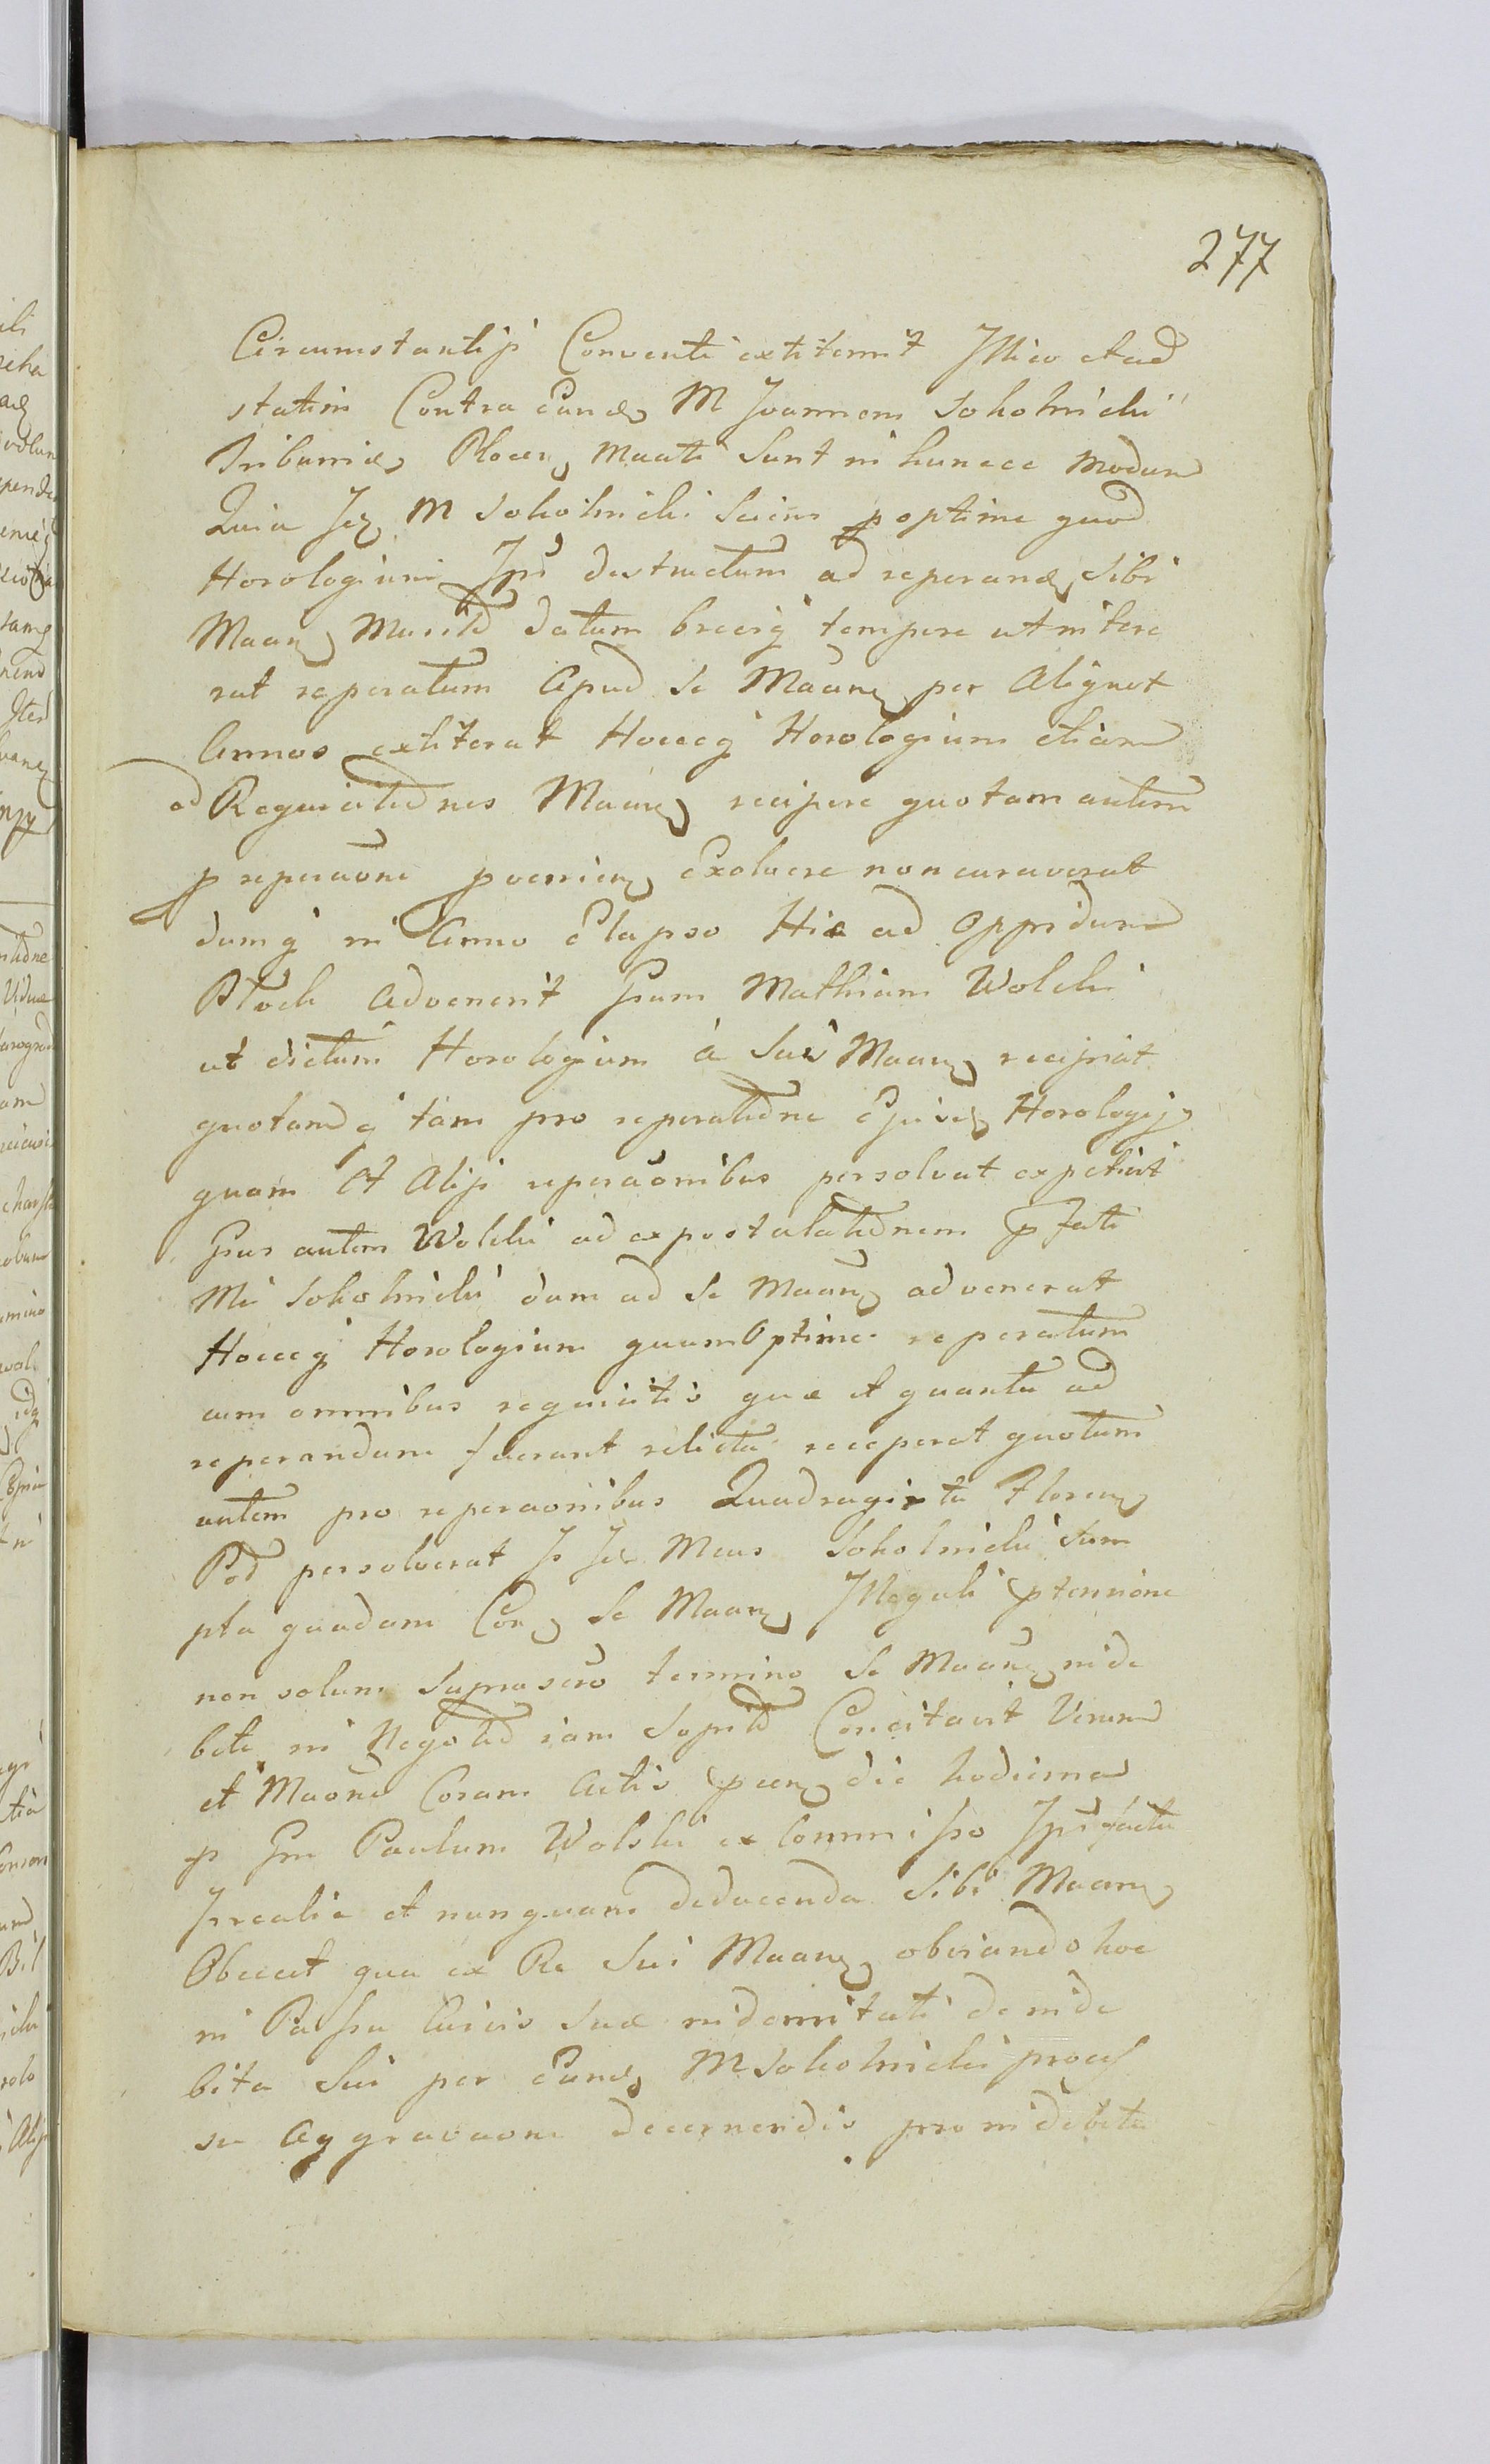 277
Circumstantijs Conventi extiterint Illico et ad
statim Contra Eund M Joannem Sokolnicki
Tribunid Plocen Maati Sunt in huncce modum
Quia Id M Sokolnicki Sciens poptime quod
Horologium Ipsi destructum ad reperand Sibi
Maan datum brevig tempore
rat reperatum Apud Se Maane per Aliquot
Annos extiterat Hocceq Horologium etiam
ad Requisitiones Maane recipere quotam autem
p reperaone pvenien Exolvere non curaverat
dumq in Anno Elapso Hic ad Oppidum
Plock Advenerit Gsum Mathiam Wolski
ut dictum Horologium à Sui Maane recipiat
quotamq tam pro reperatione Ejusd Horologij
quam et Alijs reperaonibus persolvat expetiit
Gsus autem Wolski ad expostulationem pfati
Mi Sokolnicki dum ad Se Maane advenerat
Hocceq Horologium quam Optime reperatum
cum omnibus requisitis quæ et quanta ad
reperandum fuerant relicta receperat quotam
autem pro reperaonibus Quadraginta Floren
Pol persolverat Is Id Meus Sokolnicki Sum
pta quadam Con Se Maane Illegali ptensione
non solum Suprascro termino Se Maane inde
bite in Negotio iam Sopito Concitavit Verum
et Maone Coram Actis pcen die hodierna
p Gm Paulum Wolski ex Commisso Ipsi facta
Irealia et nunquam deducenda Sibi Maane
Obiecit qua ex Re Sui Maane obviando hoc
in Passu Iuris Suæ indemnitati de inde
bita Sui per Eund M Sokolnicki proces
su Aggravaone decernendis pro indebita